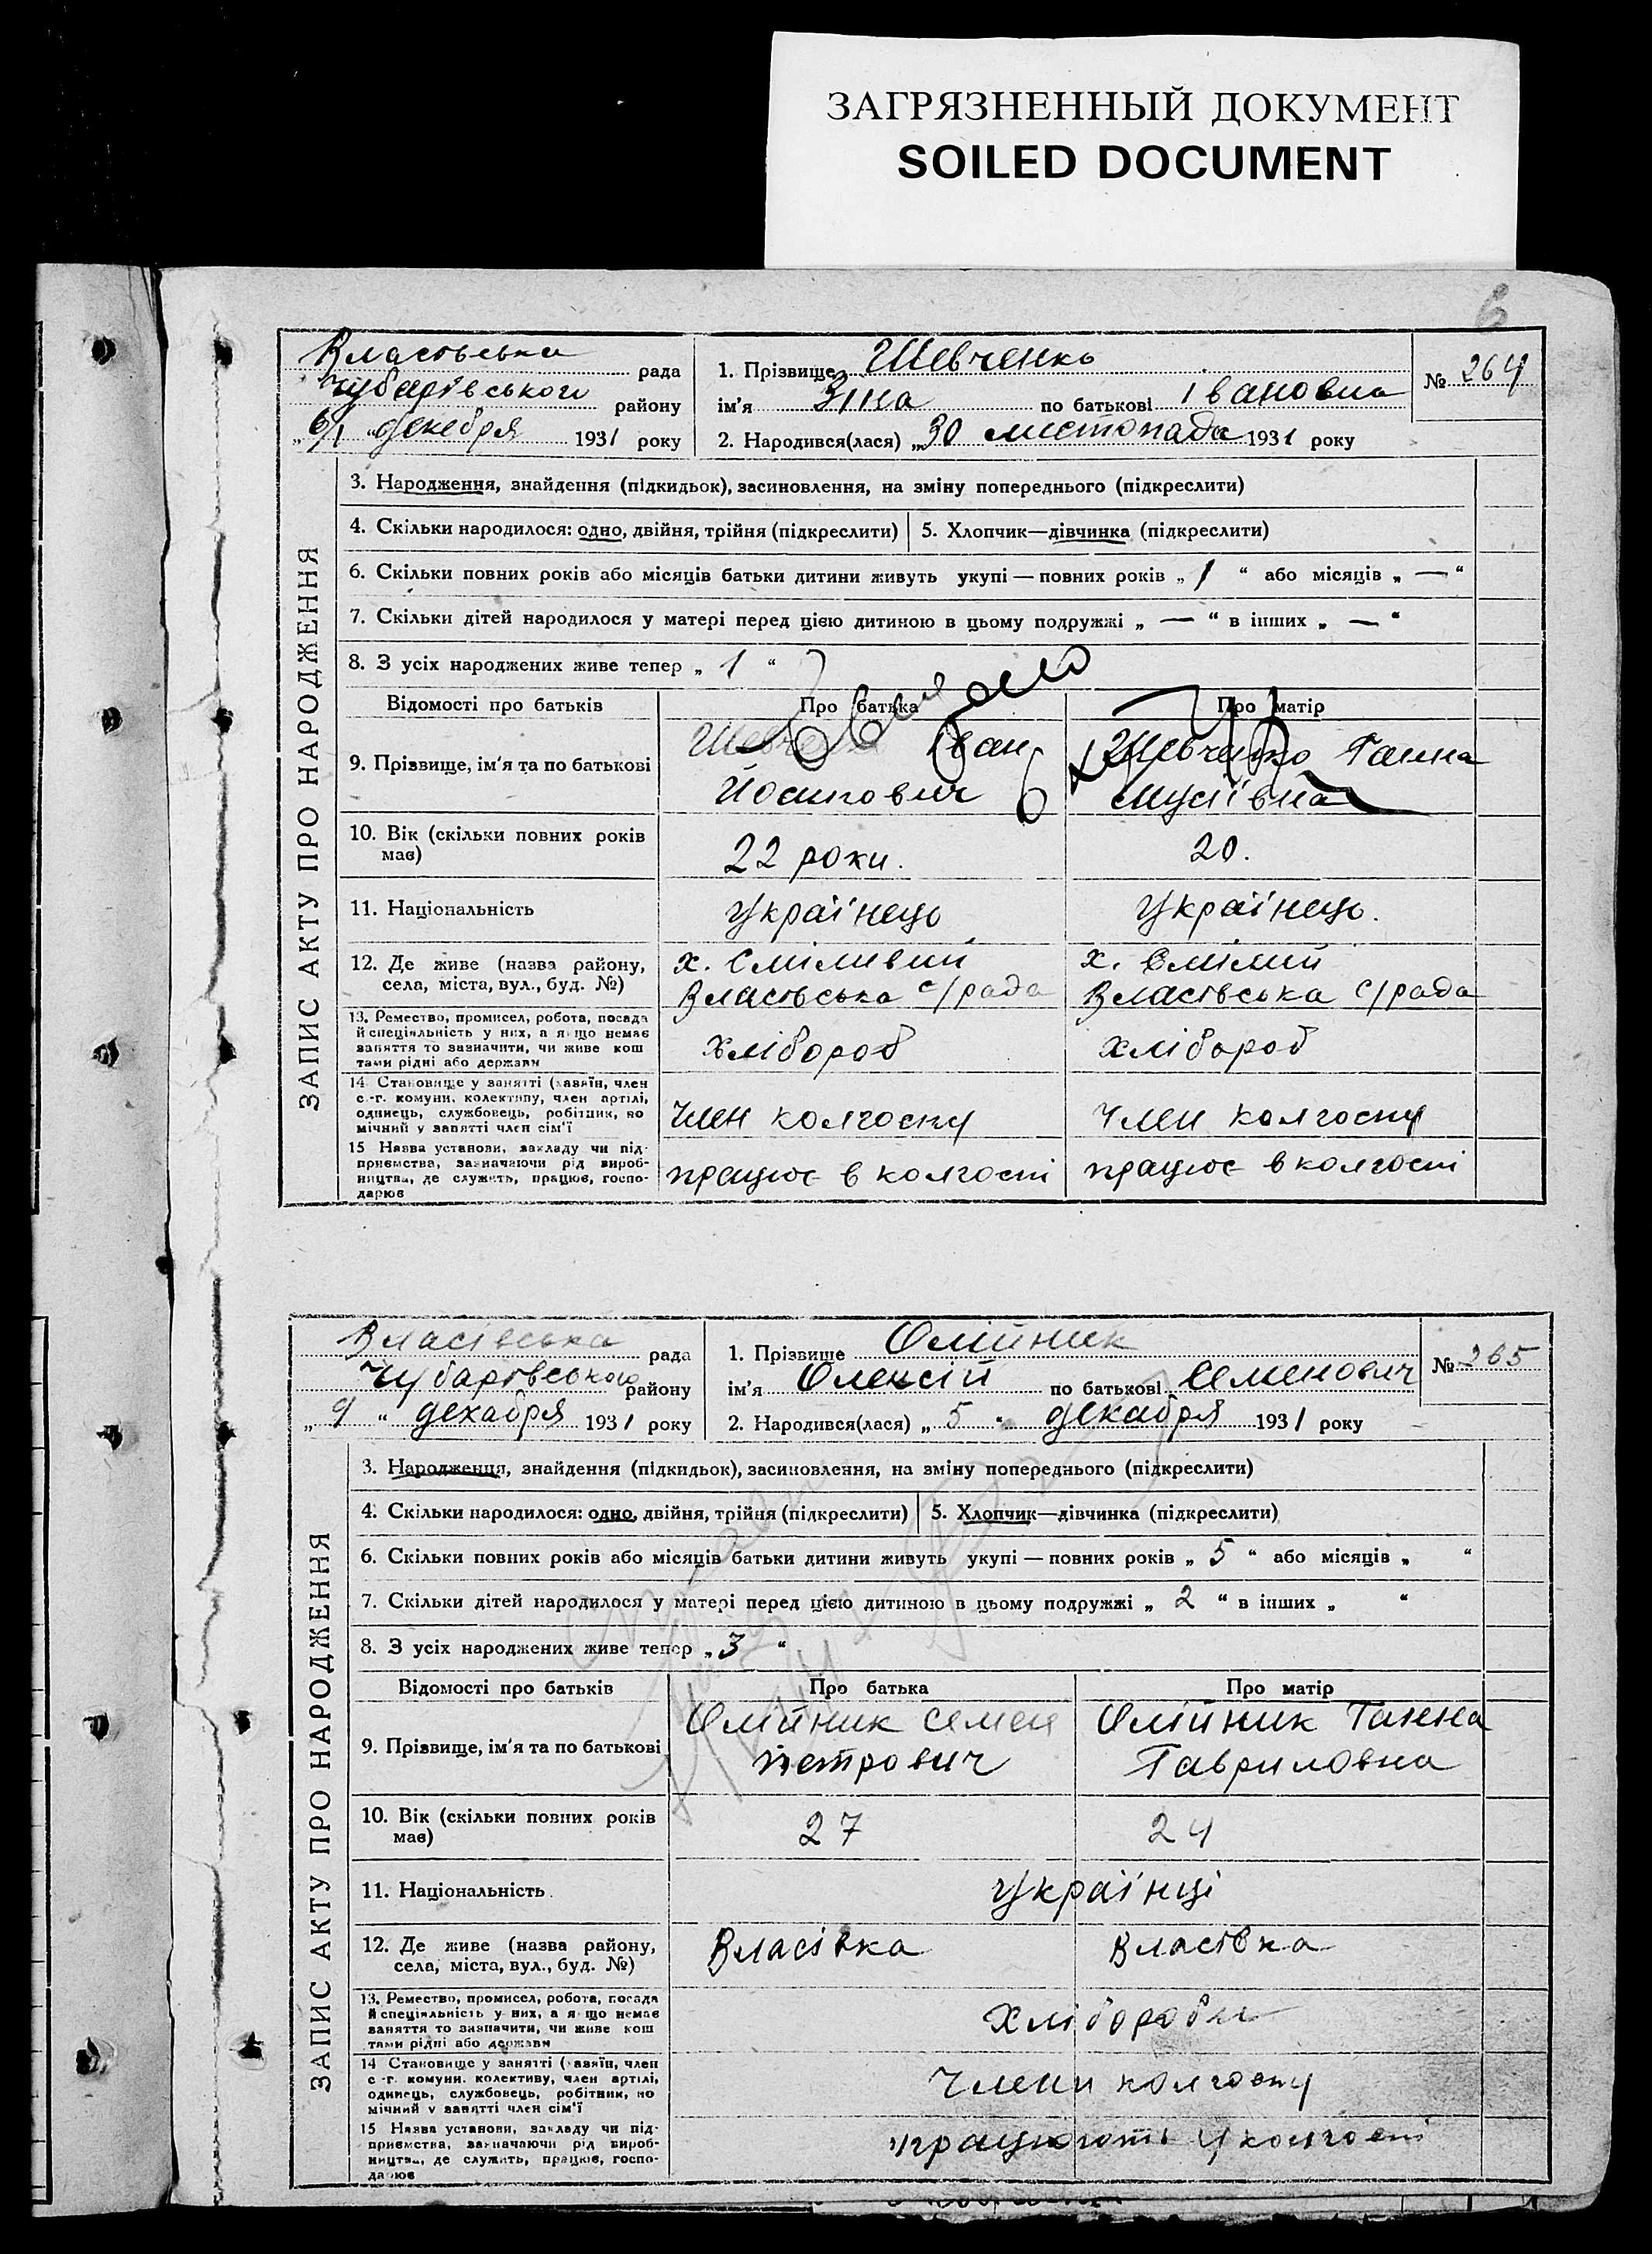 ЗАГРЯЗНЕННЫЙ ДОКУМЕНТ
SOILED DOCUMENT
6
Власівська рада
Чубарівського району
„6/1 “ декабря 1931 року
1. Прізвище Шевченко
ім'я Зіна по батькові Івановна
2. Народився(лася) „30 листопада 1931 року
№ 264
ЗАПИС АКТУ ПРО НАРОДЖЕННЯ
3. Народження, знайдення (підкидьок), засиновлення, на зміну попереднього (підкреслити)
4. Скільки народилося: одно, двійня, трійня (підкреслити) 5. Хлопчик—дівчинка (підкреслити)
6. Скільки повних років або місяців батьки дитини живуть укупі — повних років „ 1 “ або місяців „ — “
7. Скільки дітей народилося у матері перед цією дитиною в цьому подружжі „ — “ в інших „ — “
8. З усіх народжених живе тепер „ 1 “
Відомості про батьків Про батька Про матір
9. Прізвище, ім'я та по батькові
Шевченко Іван
Йосипович
Шевченко Ганна
Мусіївна
10. Вік (скільки повних років
має)
22 роки. 20.
11. Національність Українець Українець.
12. Де живе (назва району,
села, міста, вул., буд. №)
х. Сміливий
Власівська с/рада
х. Смілий
Власівська с/рада
13. Ремество, промисел, робота, посада
й спеціяльність у них, а якщо немає
заняття то зазначити, чи живе кош
тами рідні або держави
Хлібороб Хлібороб
14 Становище у занятті (хазяїн, член
с.-г. комуни, колективу, член артілі,
одинець, службовець, робітник, по
мічний у занятті член сім'ї
Член колгоспу Член колгоспу
15 Назва установи, закладу чи під-
приємства, зазначаючи рід вироб-
ництва, де служить, працює, госпо-
дарює
працює в колгоспі працює в колгоспі
Власівська рада
Чубарівського району
„ 9 “ декабря 1931 року
1. Прізвище Олійник
ім'я Олексій по батькові Семенович
2. Народився(лася) „ 5 “ декабря 1931 року
№ 265
ЗАПИС АКТУ ПРО НАРОДЖЕННЯ
3. Народження, знайдення (підкидьок), засиновлення, на зміну попереднього (підкреслити)
4. Скільки народилося: одно, двійня, трійня (підкреслити) 5. Хлопчик—дівчинка (підкреслити)
6. Скільки повних років або місяців батьки дитини живуть укупі — повних років „ 5 “ або місяців „ “
7. Скільки дітей народилося у матері перед цією дитиною в цьому подружжі „ 2 “ в інших „ “
8. З усіх народжених живе тепер „ 3 “
Відомості про батьків Про батька Про матір
9. Прізвище, ім'я та по батькові
Олійник Семен
Петрович
Олійник Ганна
Гавриловна
10. Вік (скільки повних років
має)
27 24
11. Національність Українці
12. Де живе (назва району,
села, міста, вул., буд. №)
Власівка Власівка
13. Ремество, промисел, робота, посада
й спеціяльність у них, а якщо немає
заняття то зазначити, чи живе кош
тами рідні або держави
Хлібороби
14 Становище у занятті (хазяїн, член
с.-г. комуни, колективу, член артілі,
одинець, службовець, робітник, по
мічний у занятті член сім'ї
Члени колгоспу
15 Назва установи, закладу чи під-
приємства, зазначаючи рід вироб-
ництва, де служить, працює, госпо-
дарює
працюють у колгоспі